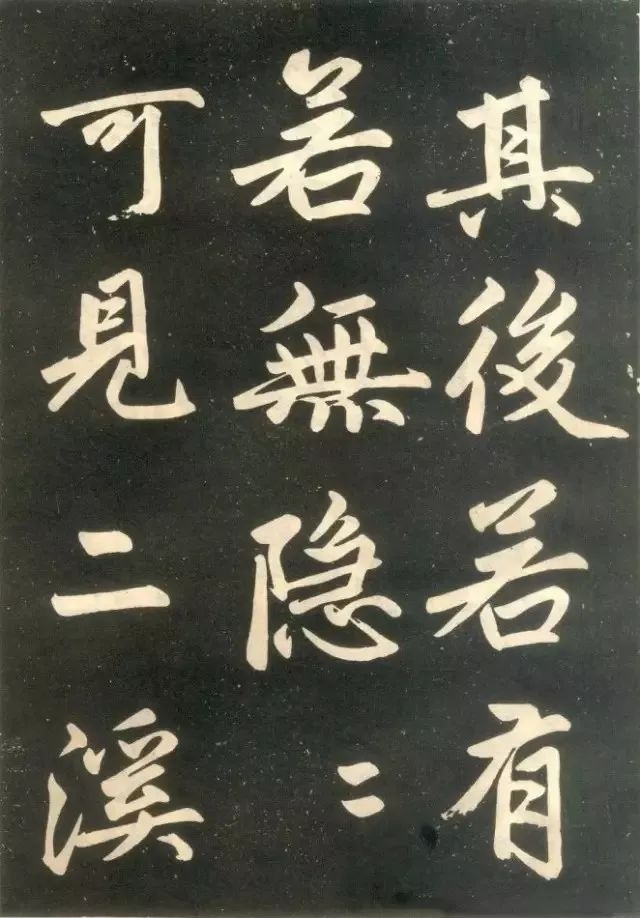 其後若有
若無隐二
可見二溪